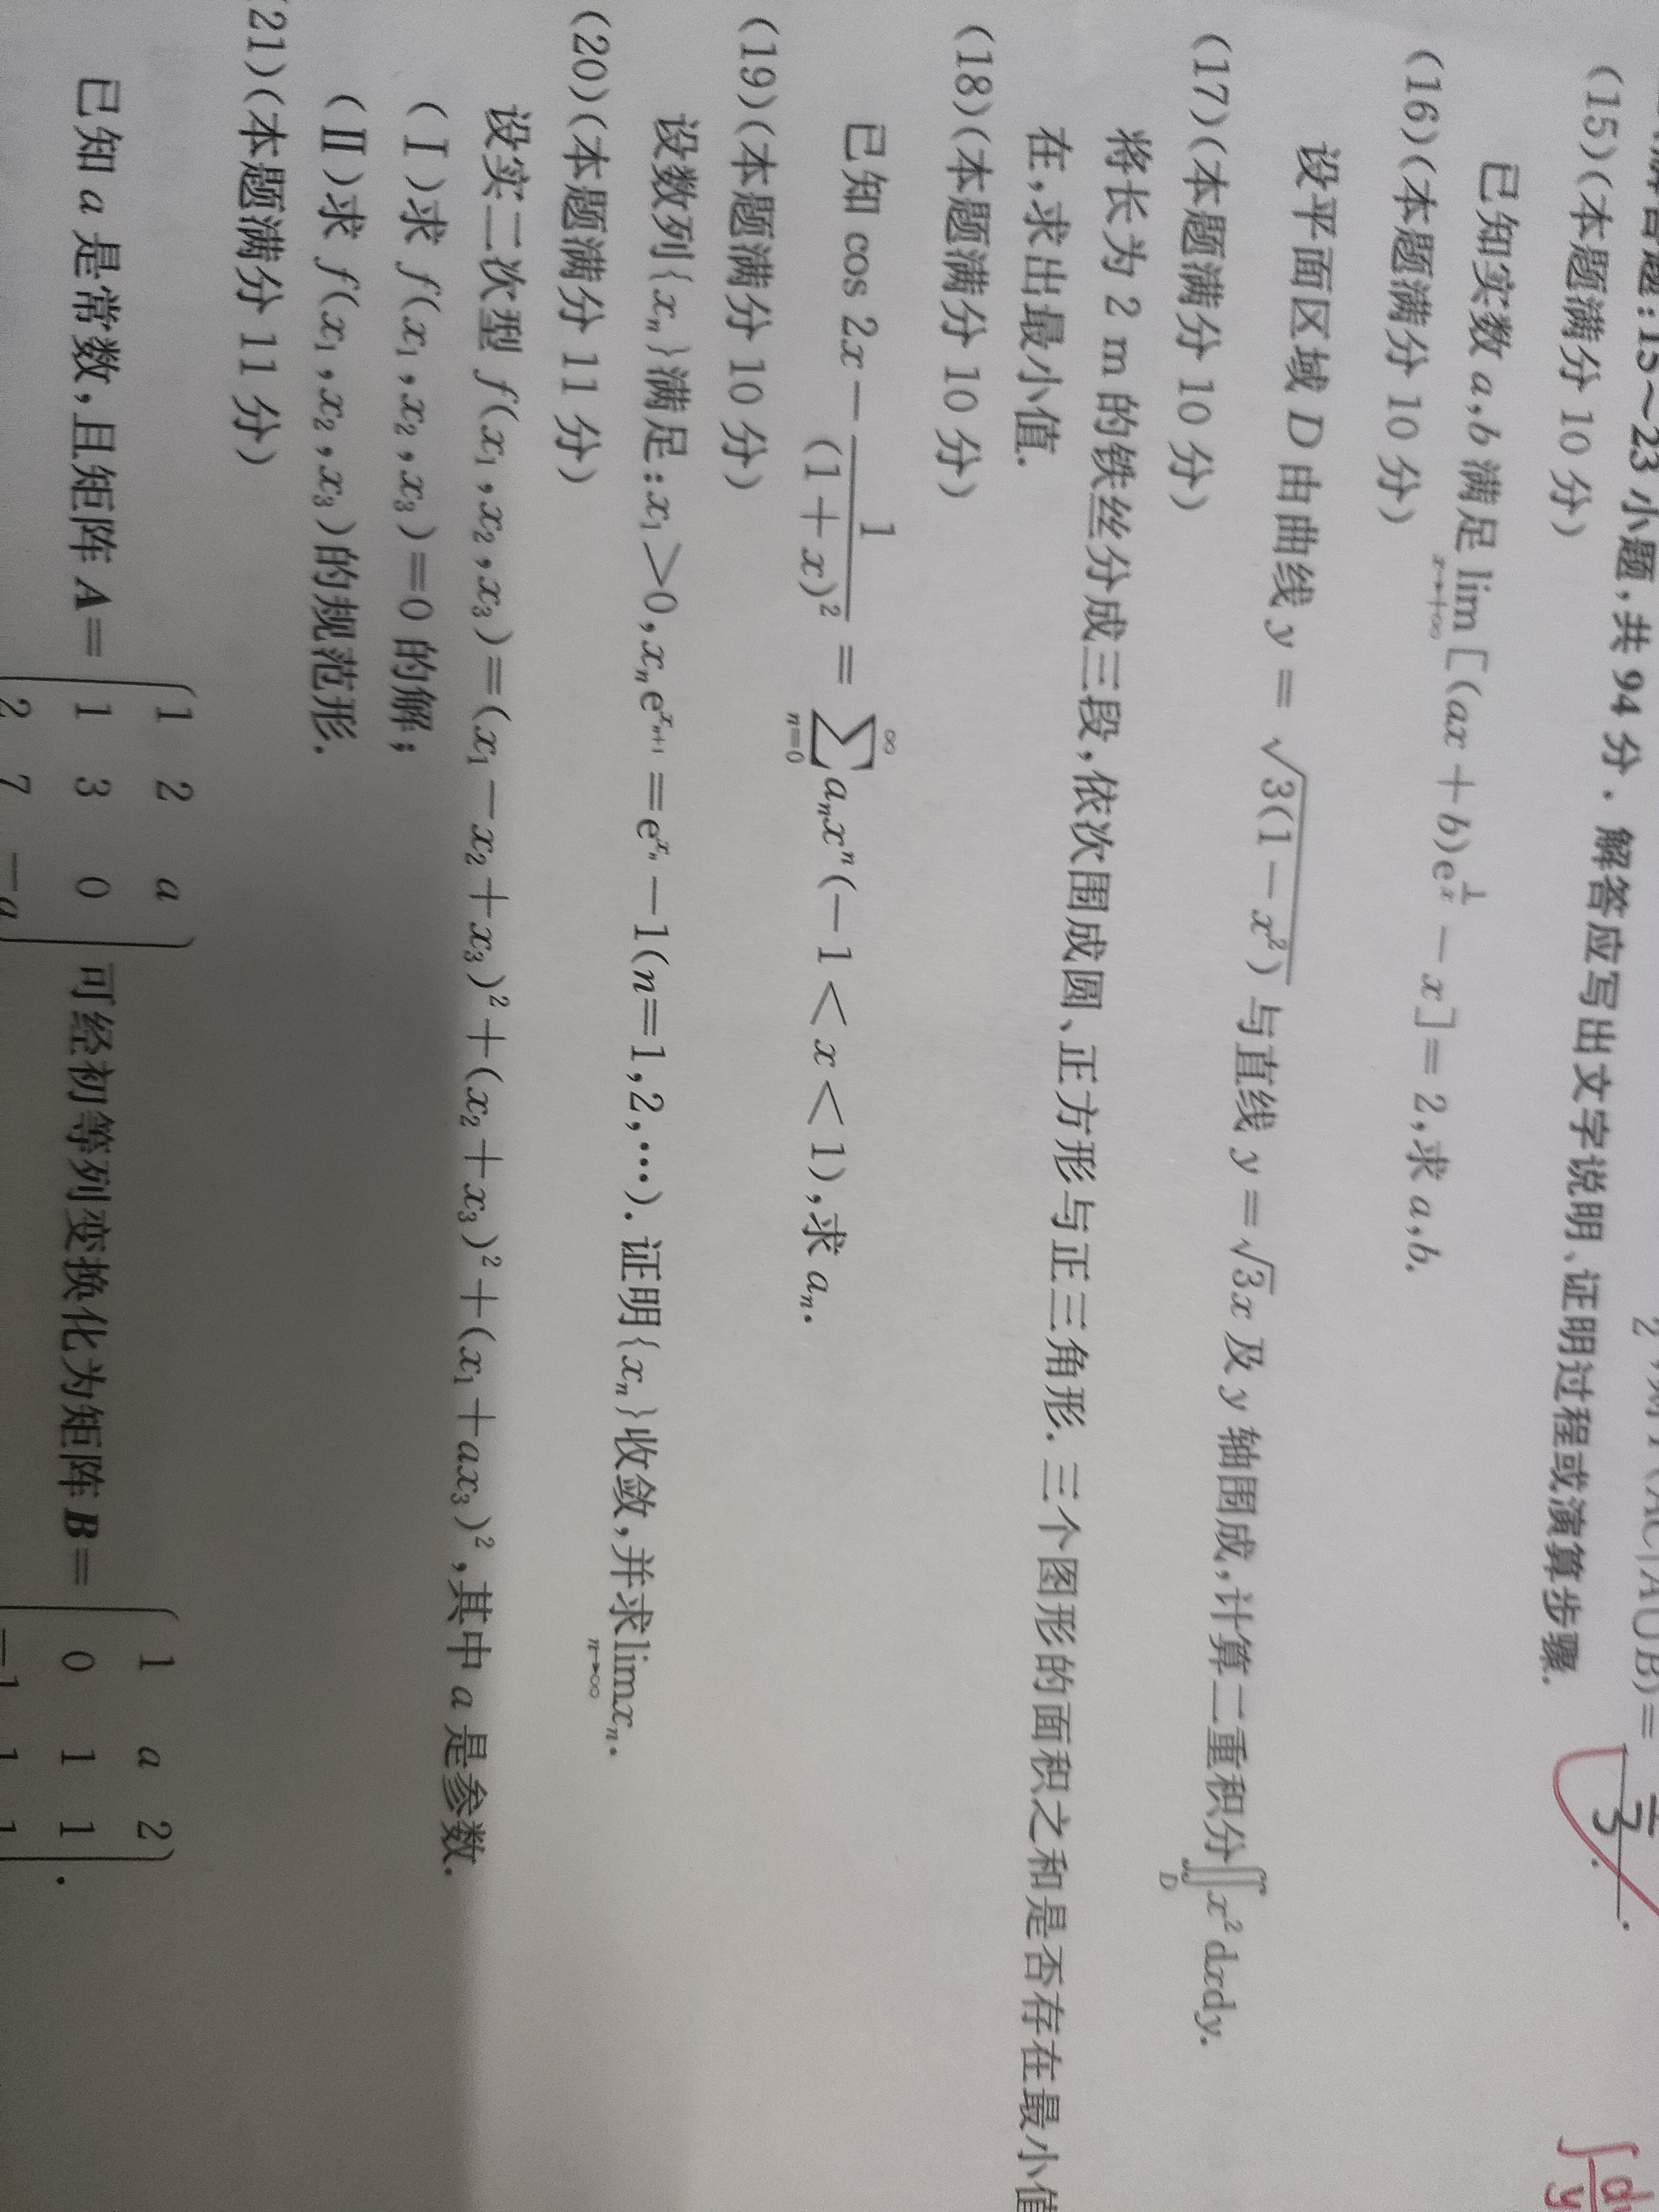 解答题:15～23小题,共94分.解答应写出文字说明、证明过程或演算步骤.
(15)(本题满分10分)
已知实数a,b满足lim_{x→+∞}[(ax+b)e^{1/x}-x]=2,求a,b.
(16)(本题满分10分)
设平面区域D由曲线y=√(3(1-x²))与直线y=√3x及y轴围成,计算二重积分∬_D x²dxdy.
(17)(本题满分10分)
将长为2 m的铁丝分成三段,依次围成圆、正方形与正三角形.三个图形的面积之和是否存在最小值
在,求出最小值.
(18)(本题满分10分)
已知cos 2x-1/(1+x)²=∑_{n=0}^{∞}a_nx^n(-1<x<1),求a_n.
(19)(本题满分10分)
设数列{x_n}满足:x_1>0,x_ne^{x_{n+1}}=e^{x_n}-1(n=1,2,⋯).证明{x_n}收敛,并求lim_{n→∞}x_n.
(20)(本题满分11分)
设实二次型f(x_1,x_2,x_3)=(x_1-x_2+x_3)²+(x_2+x_3)²+(x_1+ax_3)²,其中a是参数.
(Ⅰ)求f(x_1,x_2,x_3)=0的解;
(Ⅱ)求f(x_1,x_2,x_3)的规范形.
21)(本题满分11分)
1 2 a 1 a 2
已知a是常数,且矩阵A= 1 3 0 可经初等列变换化为矩阵B= 0 1 1 .
2 7 -a -1 1 1